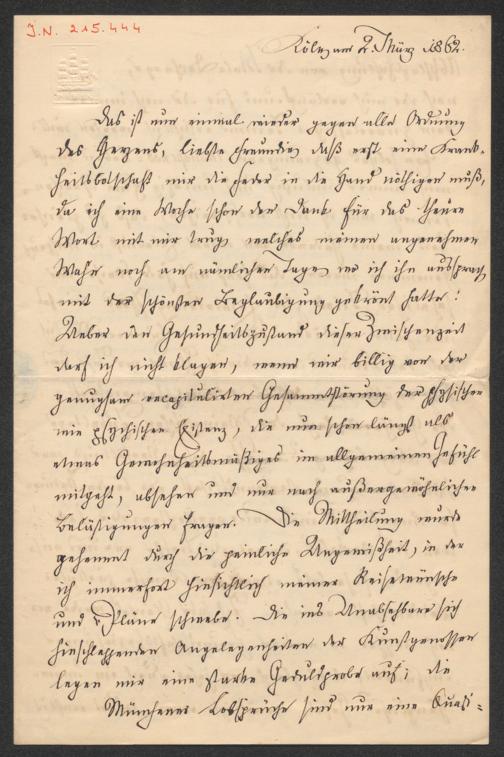 J.N. 215.444
Köln, am 2. März 1862.
Das ist nun einmal wieder gegen alle Ordnung
des Herzens, liebste Freundin, daß erst eine Krank-
heitsbotschaft mir die Feder in die Hand nöthigen muß,
da ich eine Woche schon den Dank für das theure
Wort mit mir trug, welches meinen angenehmen
Wahn noch am nämlichen Tage, wo ich ihn aussprach
mit der schönsten Beglaubigung gekrönt hatte!
Ueber den Gesundheitszustand dieser Zwischenzeit
darf ich nicht klagen, wenn wir billig von der
genugsam recapitulirten Gesammtstörung der physischen
wie psychischen Existenz, die nun schon längst als
etwas Gewohnheitsmäßiges im allgemeinen Gefühl
mitgeht, absehen und nur nach außergewöhnlichen
Belästigungen fragen. Die Mittheilung wurde
gehemmt durch die peinliche Ungewißheit, in der
ich immerfort hinsichtlich meiner Reisewünsche
und -Pläne schwebe. Die ins Unabsehbare sich
hinschleppenden Angelegenheiten der Kunstgenossen
legen mir eine starke Geduldsprobe auf; die
Münchener Lobsprüche sind nur eine Quasi-